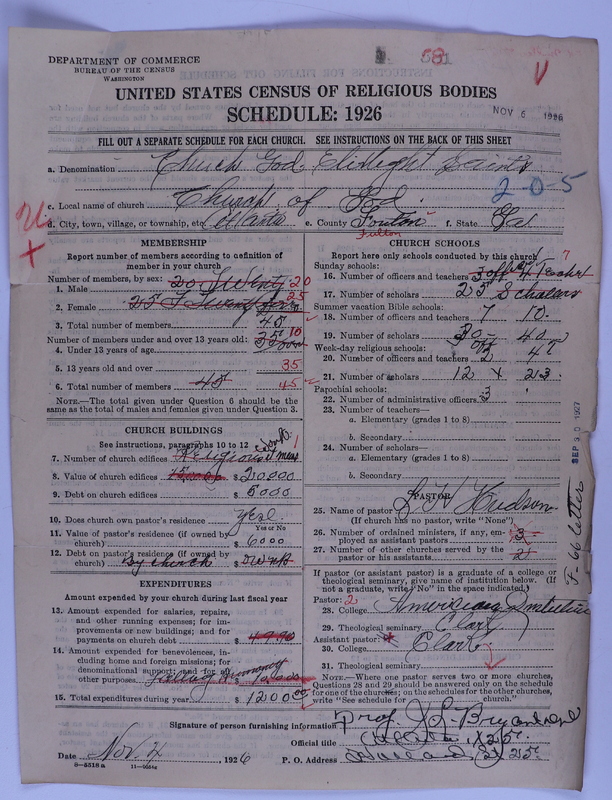 DEPARTMENT OF COMMERCE
BUREAU OF THE CENSUS
WASHINGTON
581
UNITED STATES CENSUS OF RELIGIOUS BODIES
SCHEDULE: 1926
NOV 6 1926
FILL OUT A SEPARATE SCHEDULE FOR EACH CHURCH. SEE INSTRUCTIONS ON THE BACK OF THIS SHEET
a. Denomination Church God Saints
2-0-5
c. Local name of church Church of God
d. City, town, village, or township, etc Atlanta e. County Fouton f. State Ga
Fulton
MEMBERSHIP
Report number of members according to definition of
member in your church
Number of members, by sex:
1. Male 20 Twenty 20
2. Female 25 25
3. Total number of members 45
Number of members under and over 13 years old:
4. Under 13 years of age 10
5. 13 years old and over 35
6. Total number of members 45 45
NOTE.—The total given under Question 6 should be
the same as the total of males and females given under Question 3.
CHURCH BUILDINGS
See instructions, paragraphs 10 to 12
7. Number of church edifices 1
8. Value of church edifices $20000
9. Debt on church edifices $5000
10. Does church own pastor's residence Yes
Yes or No
11. Value of pastor's residence (if owned by
church) $6000
12. Debt on pastor's residence (if owned by
church) By church $
EXPENDITURES
Amount expended by your church during last fiscal year
13. Amount expended for salaries, repairs,
and other running expenses; for im-
provements or new buildings; and for
payments on church debt $
14. Amount expended for benevolences, in-
cluding home and foreign missions; for
denominational support; and for all
other purposes
15. Total expenditures during year $1200 00
CHURCH SCHOOLS
Report here only schools conducted by this church
Sunday schools:
16. Number of officers and teachers 3 off 4 Teacher 7
17. Number of scholars 25 Scholars
Summer vacation Bible schools:
18. Number of officers and teachers 7 10
19. Number of scholars 30 40
Week-day religious schools:
20. Number of officers and teachers 2 4
21. Number of scholars 12 x 23
Parochial schools:
22. Number of administrative officers 3
23. Number of teachers—
a. Elementary (grades 1 to 8)
b. Secondary
24. Number of scholars—
a. Elementary (grades 1 to 8)
b. Secondary
SEP 30 1927
F-66 letter
PASTOR
25. Name of pastor L H Hudson
(If church has no pastor, write "None")
26. Number of ordained ministers, if any, em-
ployed as assistant pastors 3
27. Number of other churches served by the
pastor or his assistants 2
If pastor (or assistant pastor) is a graduate of a college or
theological seminary, give name of institution below. (If
not a graduate, write "No" in the space indicated.)
Pastor: 2
28. College American Institute
29. Theological seminary Clark
Assistant pastor:
30. College Clark
31. Theological seminary
NOTE.—Where one pastor serves two or more churches,
Question 28 and 29 should be answered only on the schedule
for one of the churches; on the schedules for the other churches,
write "See schedule for church."
Signature of person furnishing information Prof. J L Bryant
Official title
Date Nov 4, 1926 P. O. Address
8-5518 a 11-9554